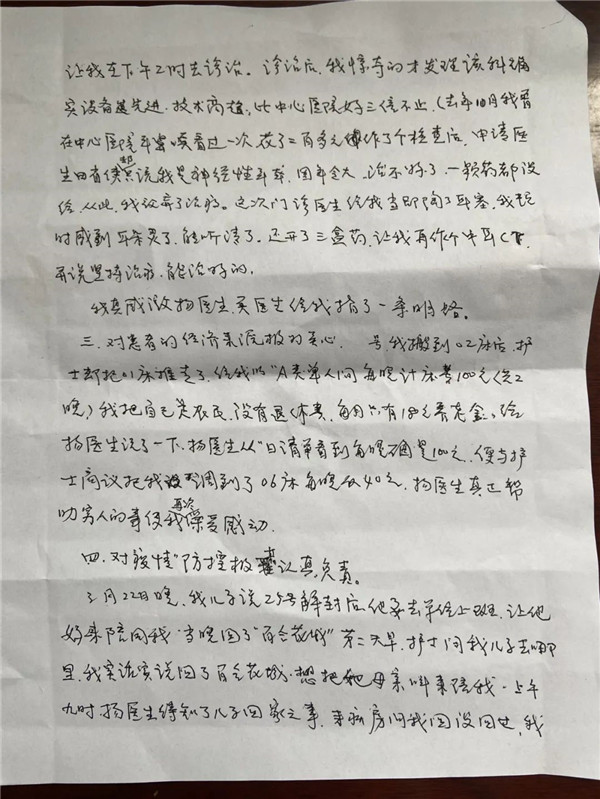 让我在下午2时去诊治。诊治后,我惊奇的才发现该科确
实设备先进,技术高超,比中心医院好三倍不止,(去年10月我曾
在中心医院耳鼻喉看过一次,花了二百多元作了个检查后,申请医
生田者侯却只说我是神经性耳聋,因年令大,治不好了,一颗药都没
给,从此,我放弃了治疗。这次门诊医生给我当即掏了耳塞,我顿
时感到耳朵灵了,能听清了。还开了三盒药,让我再作个中耳CT,
并说坚持治疗,能治好的。
我真感激杨医生,是医生给我指了一条明路。
三、对患者的经济来源极为关心。 我搬到02床后,护
士却把01床推走了,给我以"A类单人间每晚计床费100元(给2
晚)我把自己是农民,没有退休费,每月只有180元养老金,给
杨医生说了一下,杨医生从"日清单看到每晚确是100元,便与护
士商议把我调到了06床每晚仅40元,杨医生真正帮
助穷人的事使我再次深受感动。
四、对疫情"防控极其认真负责。
3月22日晚,我儿子说25号解封后,他要去单位上班,让他
妈来陪同我,当晚回了"百合花城"第二天早,护士问我儿子去哪
里,我实话实说回了百合花城,想把他母亲叫来陪我,上午
九时,杨医生得知了儿子回家之事,来病房问我回没回去,我